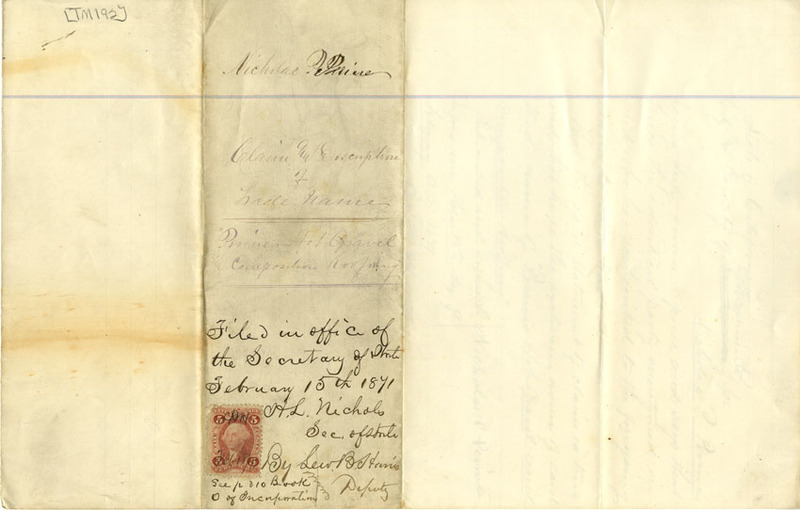 [TM192]
Nicholas P. Prine
Claim & Description
of
Trade Name
Hot Gravel
Composition Roofing
Filed in office of
the Secretary of State
February 15th 1871
H. L. Nichols
Sec. of State
By Lew B Harris
Deputy
See p 210 Book
O of Incorporation
5 5